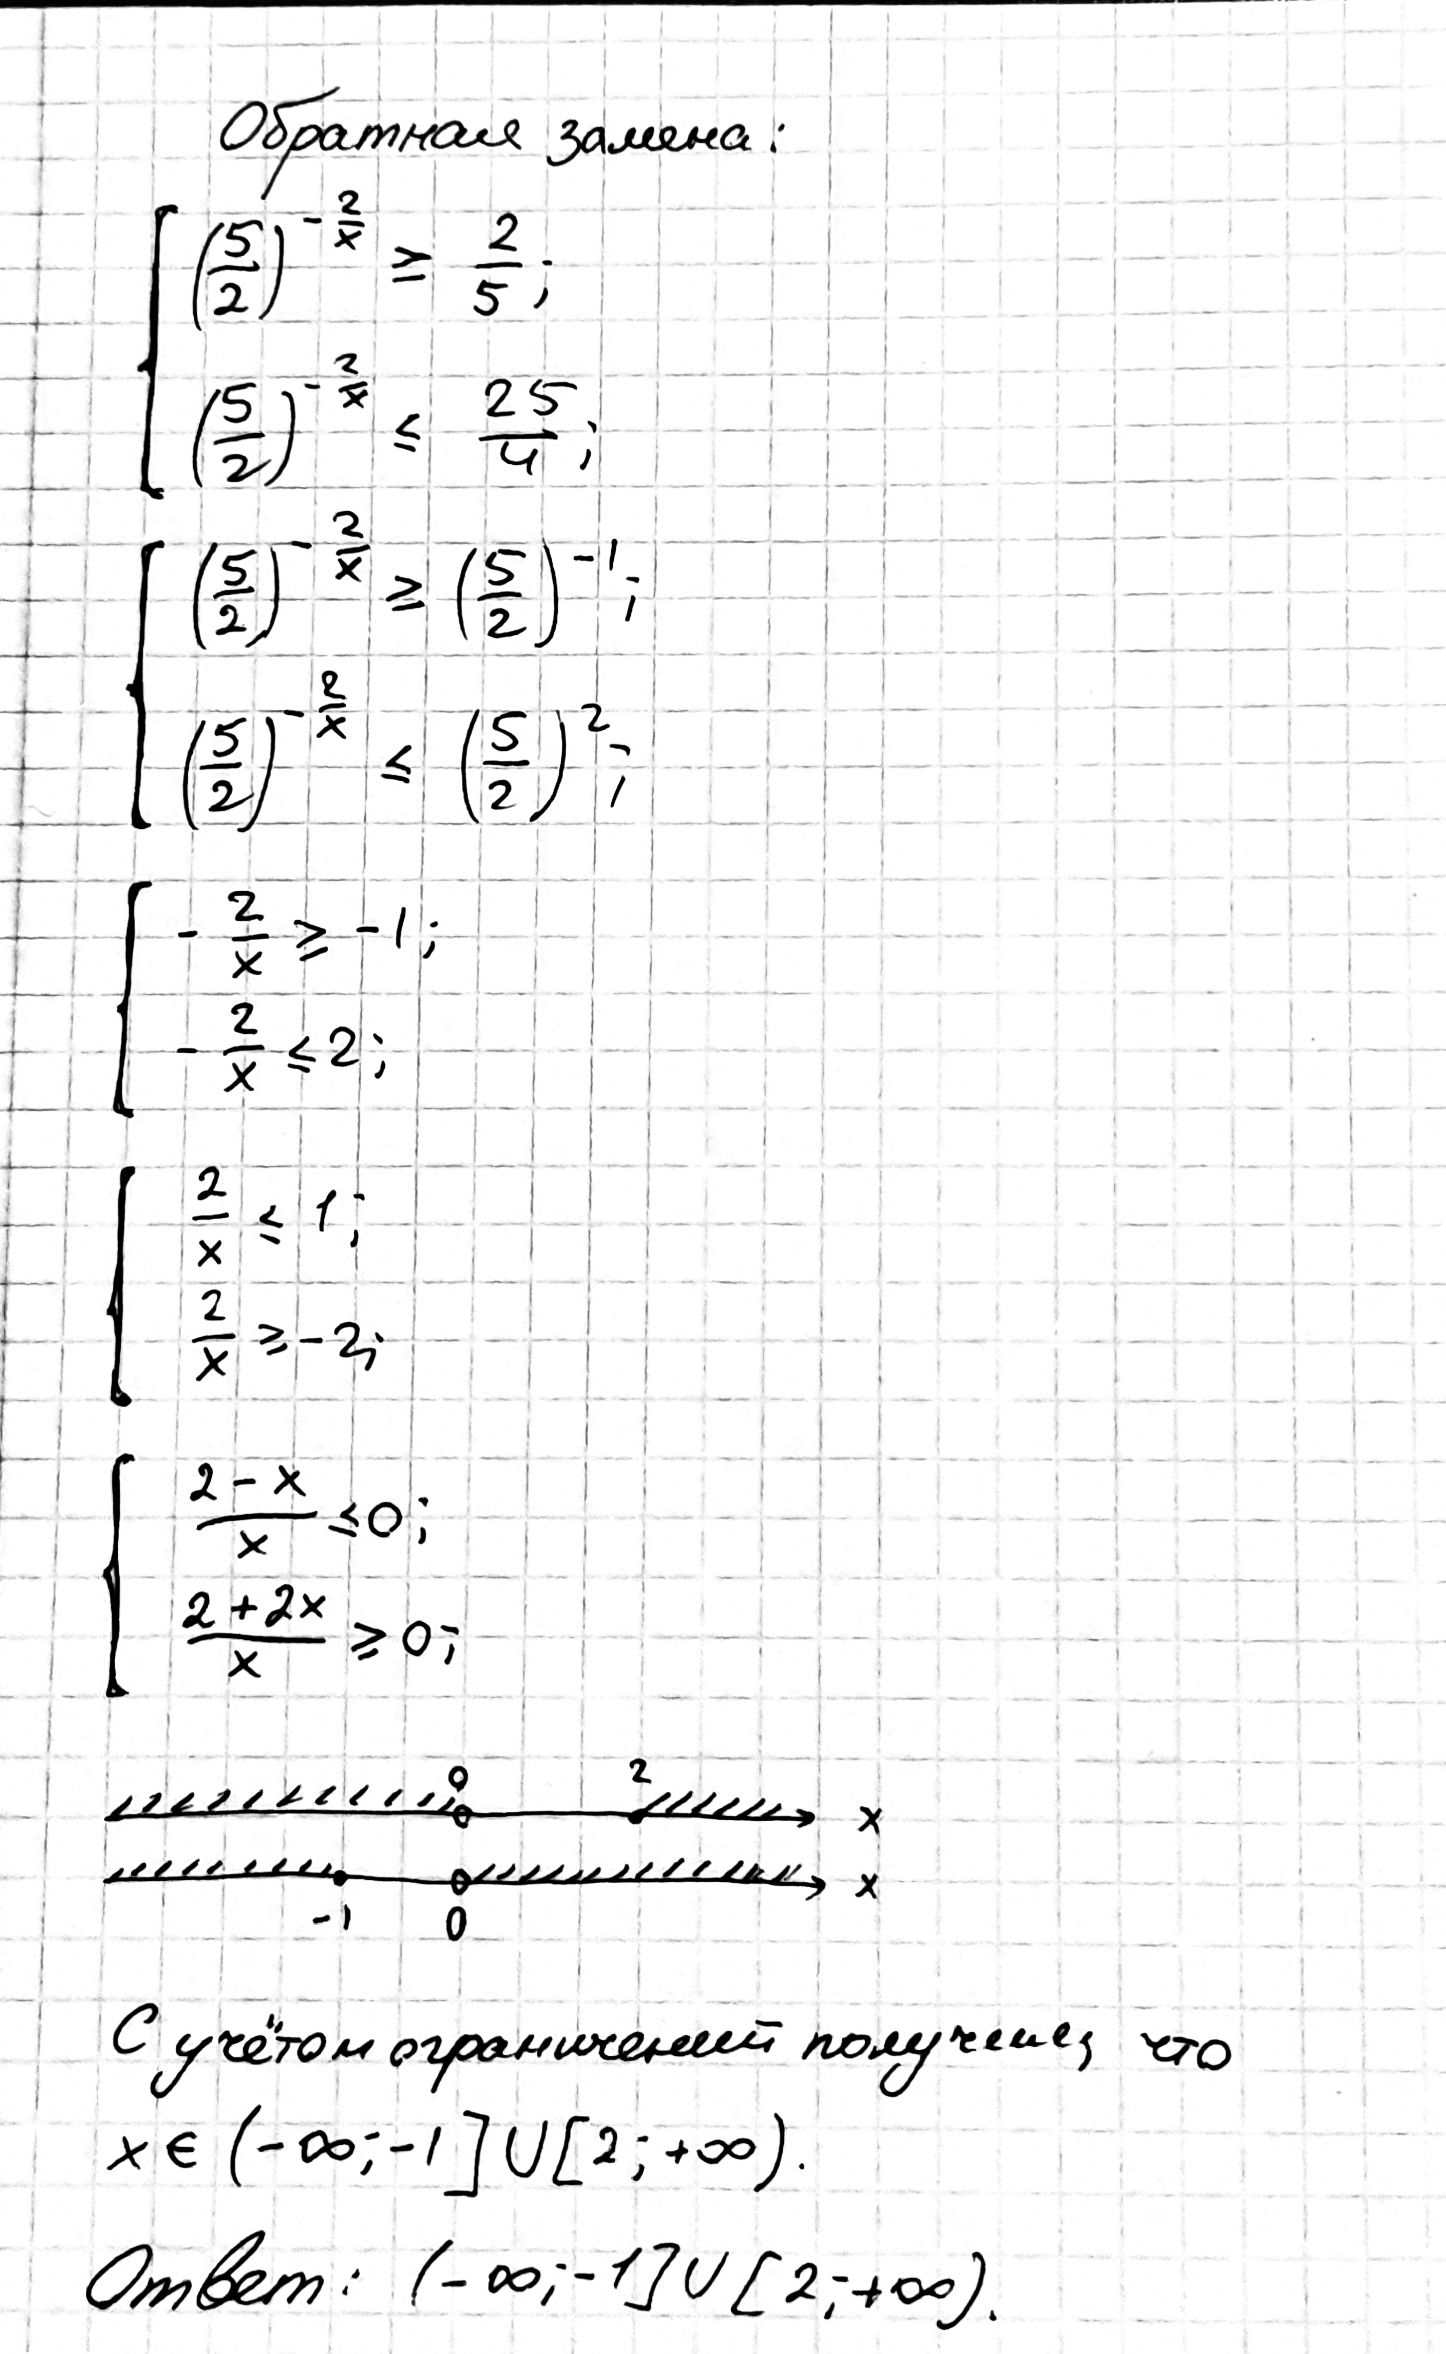 Обратная замена:
{ (5/2)^(-2/x) ≥ 2/5;
(5/2)^(-2/x) ≤ 25/4;
{ (5/2)^(-2/x) ≥ (5/2)^(-1);
(5/2)^(-2/x) ≤ (5/2)^2;
{ -2/x ≥ -1;
-2/x ≤ 2;
{ 2/x ≤ 1;
2/x ≥ -2;
{ (2-x)/x ≤ 0;
(2+2x)/x ≥ 0;
0 2
x
x
-1 0
С учётом ограничений получаем, что
x ∈ (-∞; -1] ∪ [2; +∞).
Ответ: (-∞; -1] ∪ [2; +∞).